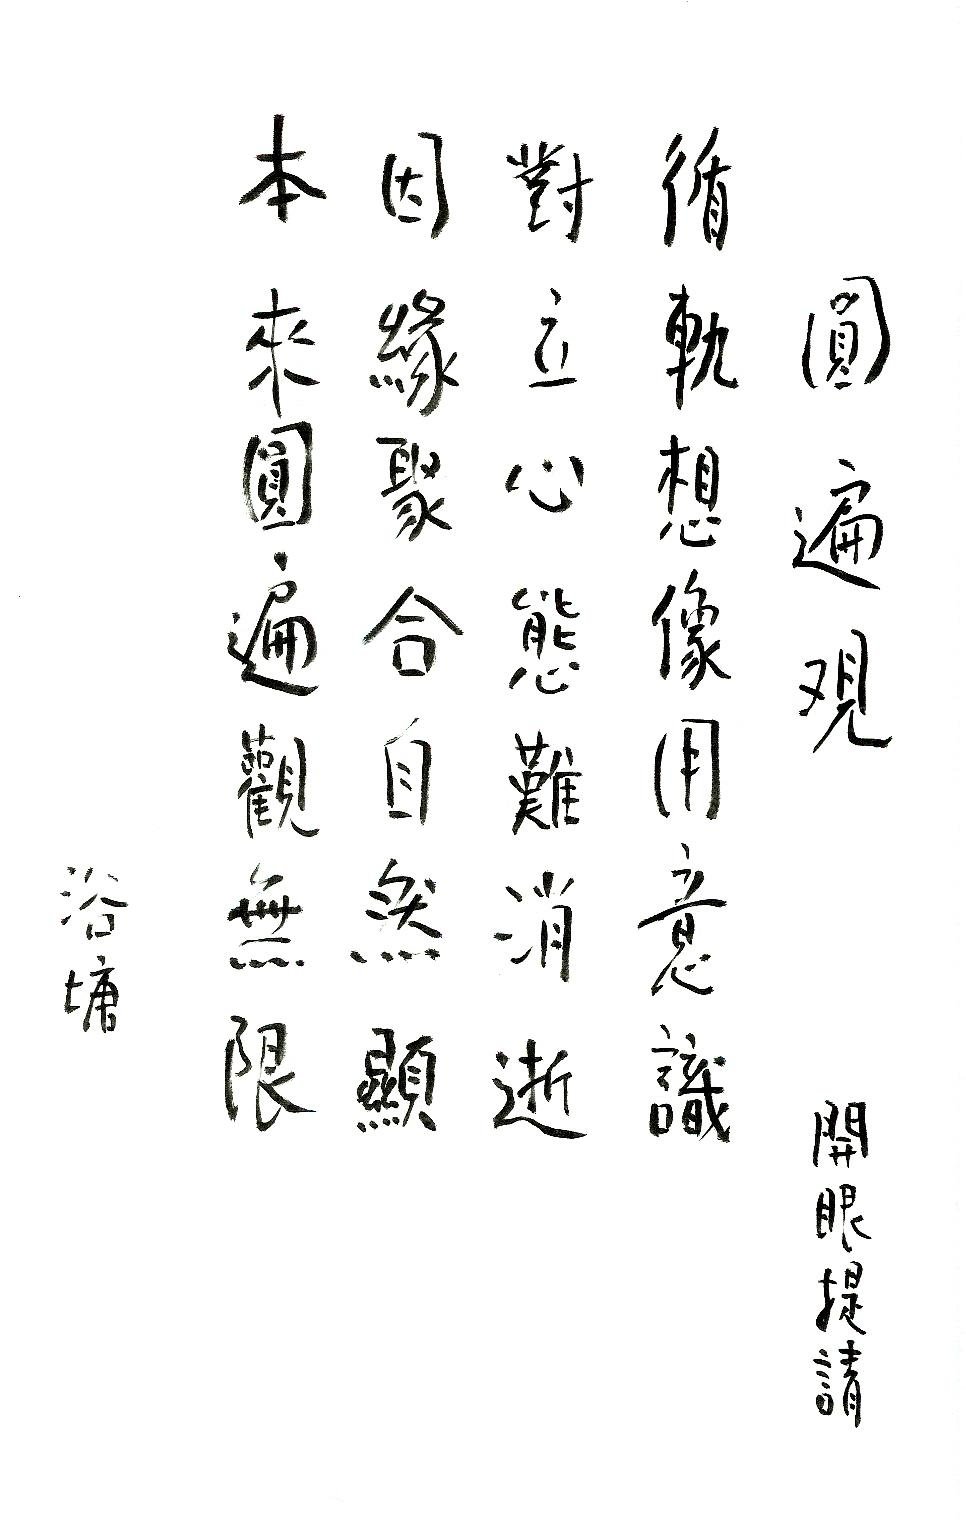 圓遍观 開眼提請
循軌想像用意識
對立心態難消逝
因緣聚合自然顯
本來圓遍觀無限
浴墉